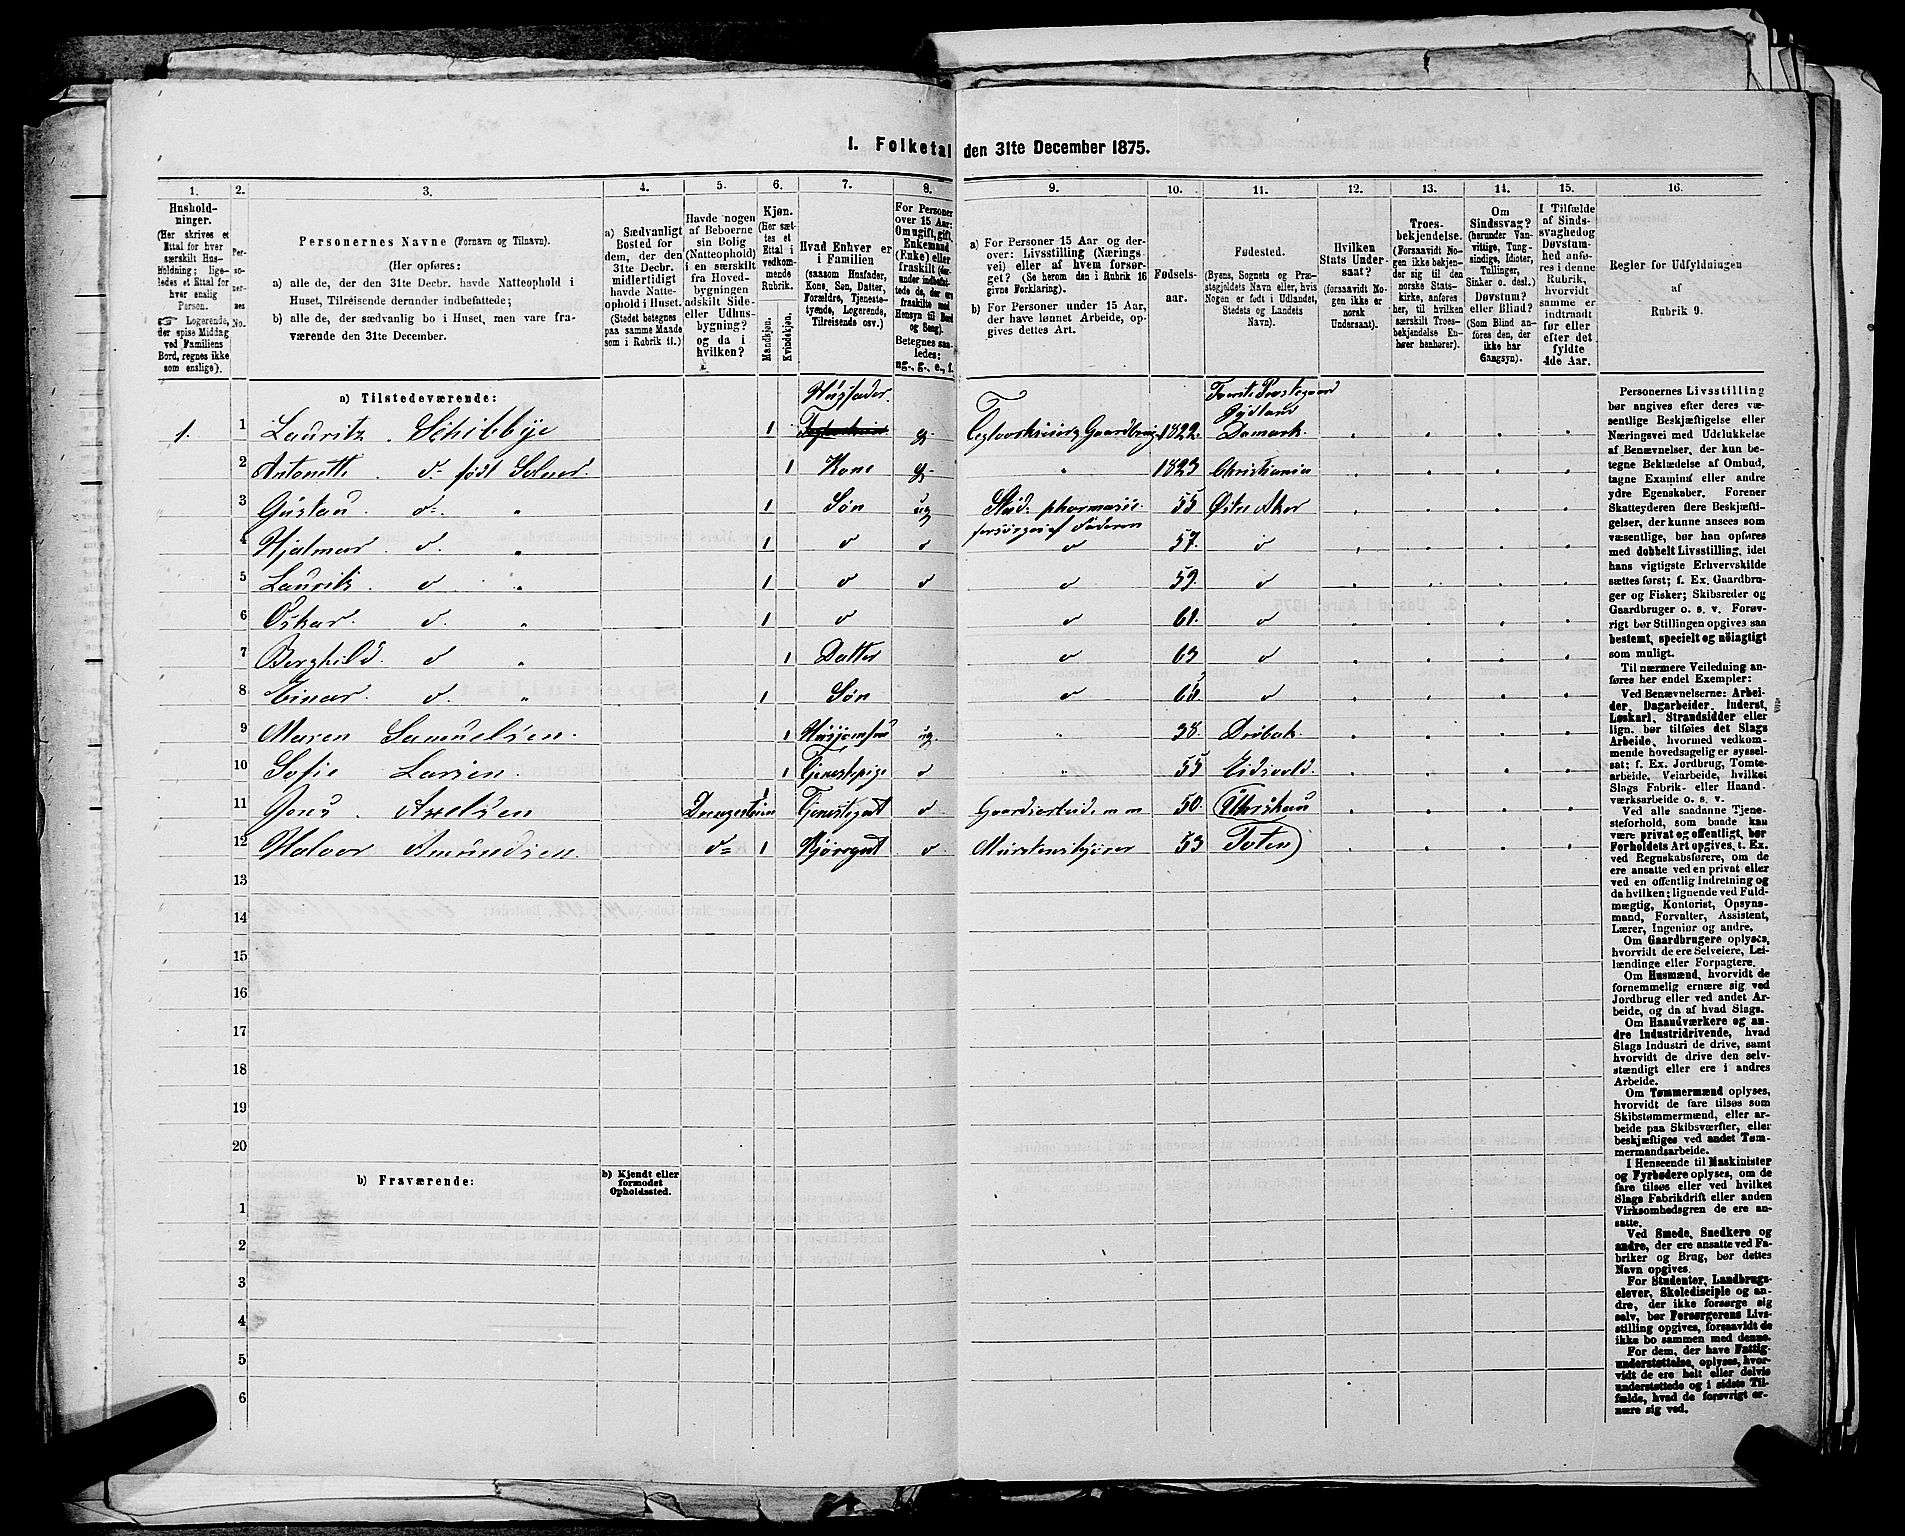 1. Folketal den 31te December 1875.
1. 2. 3. 4. 5. 6. 7. 8. 9. 10. 11. 12. 13. 14. 15. 16.
Husholdninger.
(Her skrives et Ettal for hver særskilt Husholdning; ligeledes et Ettal for hver enslig Person.
☞ Logerende, der spise Middag ved Familiens Bord, regnes ikke som enslige).
Personernes No.
Personernes Navne (Fornavn og Tilnavn).
(Her opføres:
a) alle de, der den 31te Decbr. havde Natteophold i Huset, Tilreisende derunder indbefattede;
b) alle de, der sædvanlig bo i Huset, men vare fraværende den 31te December.
a) Sædvanligt Bosted for dem, der den 31te Decbr. midlertidigt havde Natteophold i Huset. (Stedet betegnes paa samme Maade som i Rubrik 11.)
Havde nogen af Beboerne sin Bolig (Natteophold) i en særskilt fra Hovedbygningen adskilt Side- eller Udhusbygning? og da i hvilken?
Kjøn. (Her sættes et Ettal i vedkommende Rubrik.
Mandkjøn. Kvindekjøn.
Hvad Enhver er i Familien (saasom Husfader, Kone, Søn, Datter, Forældre, Tjenestetyende, Logerende, Tilreisende osv.)
For Personer over 15 Aar: Om ugift, gift, Enkemand (Enke) eller fraskilt
Betegnes saaledes: ug., g., e., f.
a) For Personer 15 Aar og derover: Livsstilling (Næringsvei) eller af hvem forsørget? (Se herom den i Rubrik 16 givne Forklaring).
b) For Personer under 15 Aar, der have lønnet Arbeide, opgives dettes Art.
Fødselsaar.
Fødested.
(Byens, Sognets og Præstegjeldets Navn eller, hvis Nogen er født i Udlandet, Stedets og Landets Navn).
Hvilken Stats Undersaat? (forsaavidt Nogen ikke er norsk Undersaat).
Troesbekjendelse. (Forsaavidt Nogen ikke bekjender sig til den norske Statskirke, anføres her, til hvilken særskilt Troesbekjendelse Enhver henhører).
Om Sindssvag? (herunder Vanvittige, Tungsindige, Idioter, Tullinger, Sinker o. desl.) Døvstum? eller Blind? (Som Blind anføres den, der ikke har Gangsyn).
I Tilfælde af Sindssvaghed og Døvstumhed anføres i denne Rubrik, hvorvidt samme er indtraadt før eller efter det fyldte 4de Aar.
Regler for Udfyldningen af Rubrik 9.
a) Tilstedeværende:
1. 1 Lauritz Schibbye 1 Husfader g. Teglværkseier, Gaardbrug. 1822. Jydland Danmark.
2 Antonette do født Solner. 1 Kone g. 1823 Christiania
3 Gustav do 1 Søn ug Stud. pharmacie forsørges af Faderen 55 Østre Aker
4 Hjalmar do 1 do do do 57. do
5 Lauritz do 1 do do do 59. do
6 Oskar. do 1 do do 61. do
7 Borghild. do 1 Datter do 63 do
8 Einar. do 1 Søn do 65 do
9 Maren Samuelsen. 1 Husjomfru ug. 38. Drøbak.
10 Sofie Larsen. 1 Tjenestepige do 55 Eidsvold.
11 Jens Axelsen 1 Tjenestegut do Gaardsarbeide m m 50.
12 Halvor Amundsen do 1 Kjøregut do Murstenskjører 53 Toten
13
14
15
16
17
18
19
20
b) Fraværende: b) Kjendt eller formodet Opholdssted.
1
2
3
4
5
6
Personernes Livsstilling
bør angives efter deres væ-
sentlige Beskjæftigelse eller
Næringsvei med Udelukkelse
af Benævnelser, der kun be-
tegne Beklædelse af Ombud,
tagne Examina eller andre
ydre Egenskaber. Forener
Skatteyderen flere Beskjæfti-
gelser, der kunne ansees som
væsentlige, bør han opføres
med dobbelt Livsstilling, idet
hans vigtigste Erhvervskilde
sættes først; f. Ex. Gaardbru-
ger og Fisker; Skibsreder og
Gaardbruger o. s. v. Forøv-
rigt bør Stillingen opgives saa
bestemt, specielt og nøiagtigt
som muligt.
Til nærmere Veiledning an-
føres her endel Exempler:
Ved Benævnelserne: Arbei-
der, Dagarbeider, Inderst,
Løskarl, Strandsidder eller
lign. bør tilføies det Slags
Arbeide, hvormed vedkom-
mende hovedsagelig er syssel-
sat; f. Ex. Jordbrug, Tomte-
arbeide, Veiarbeide, hvilket
Slags Fabrik- eller Haand-
værksarbeide o. s. v.
Ved alle saadanne Tjene-
steforhold, som baade kan
være privat og offentligt, bør
Forholdets Art opgives, t. Ex.
ved Regnskabsførere, om de
ere ansatte ved en privat eller
ved en offentlig Indretning og
da hvilken; lignende ved Fuld-
mægtig, Kontorist, Opsyns-
mand, Forvalter, Assistent,
Lærer, Ingeniør og andre.
Om Gaardbrugere oplyses,
hvorvidt de ere Selveiere, Lei-
lændinge eller Forpagtere.
Om Husmænd, hvorvidt de
fornemmelig ernære sig ved
Jordbrug eller ved andet Ar-
beide, og da af hvad Slags.
Om Haandværkere og an-
dre Industridrivende, hvad
Slags Industri de drive, samt
hvorvidt de drive den selv-
stændigt eller ere i andres
Arbeide.
Om Tømmermænd oplyses,
hvorvidt de fare tilsøs som
Skibstømmermænd, eller ar-
beide paa Skibsværfter, eller
beskjæftiges ved andet Tøm-
mermandsarbeide.
I Henseende til Maskinister
og Fyrbødere oplyses, om de
fare tilsøs eller ved hvilket
Slags Fabrikdrift eller anden
Virksomhedsgren de ere an-
satte.
Ved Smede, Snedkere og
andre, der ere ansatte ved Fa-
briker og Brug, bør dettes
Navn opgives.
For Studenter, Landbrugs-
elever, Skoledisciple og an-
dre, der ikke forsørge sig
selv, bør Forsørgerens Livs-
stilling opgives, forsaavidt de
ikke bo sammen med denne.
For dem, der have Fattig-
understøttelse, oplyses, hvor-
vidt de ere helt eller delvis
understøttede og i sidste Til-
fælde, hvad de forøvrigt er-
nære sig ved.